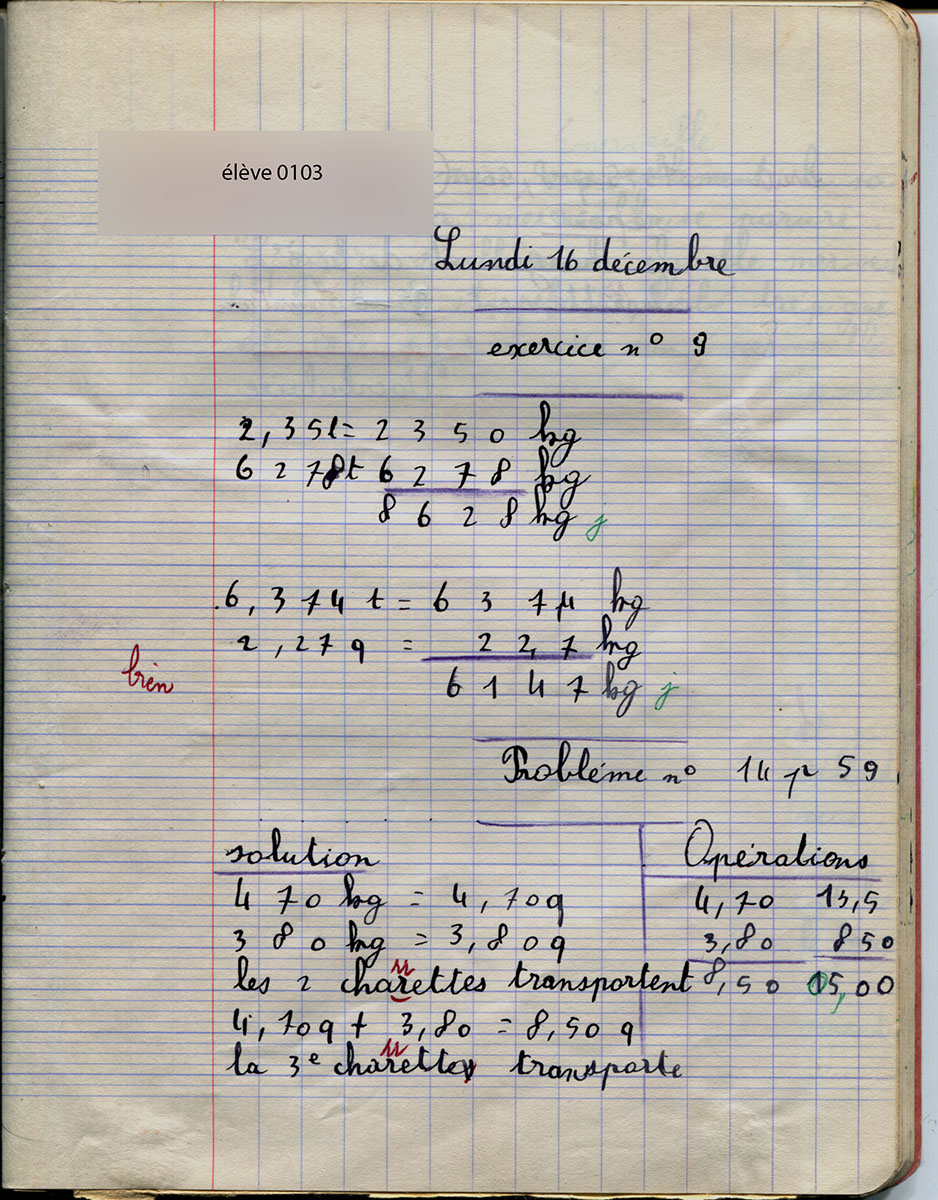 élève 0103
Lundi 16 décembre
exercice n° 9
2,35t= 2350 kg
6278t 6278 kg
8628 kg j
6,374 t = 6374 kg
2,27 q = 227 kg
bien
6147 kg j
Probléme n° 14 p 59
solution
470 kg = 4,70q
380 kg = 3,80q
les 2 charettes transportent
rr
4,70q + 3,80 = 8,50 q
rr
la 3e charette transporte
Opérations
4,70 13,5
3,80 850
8,50 05,00